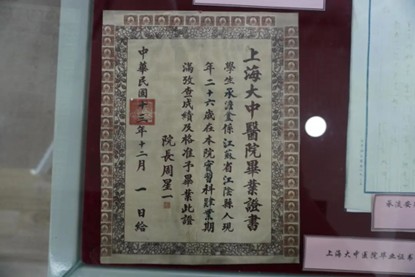 上海大中醫院畢業證書
學生承澹盦係江蘇省江陰縣人現
年二十六歲在本院實習科肄業期
滿攷查成績及格准予畢業此證
院長周星一
中華民國十三年十二月一日給
上海大中医院毕业证书